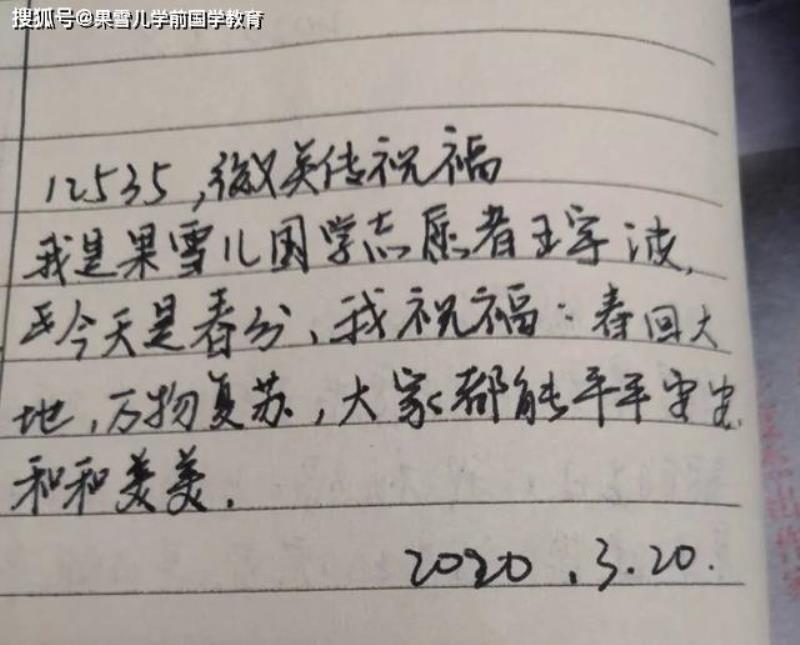 搜狐号@果雪儿学前国学教育
12535,传祝福
我是果雪儿国学志愿者王宇波,
今天是春分、我祝福:春回大
地,万物复苏,大家都能平平安安
和和美美.
2020.3.20.